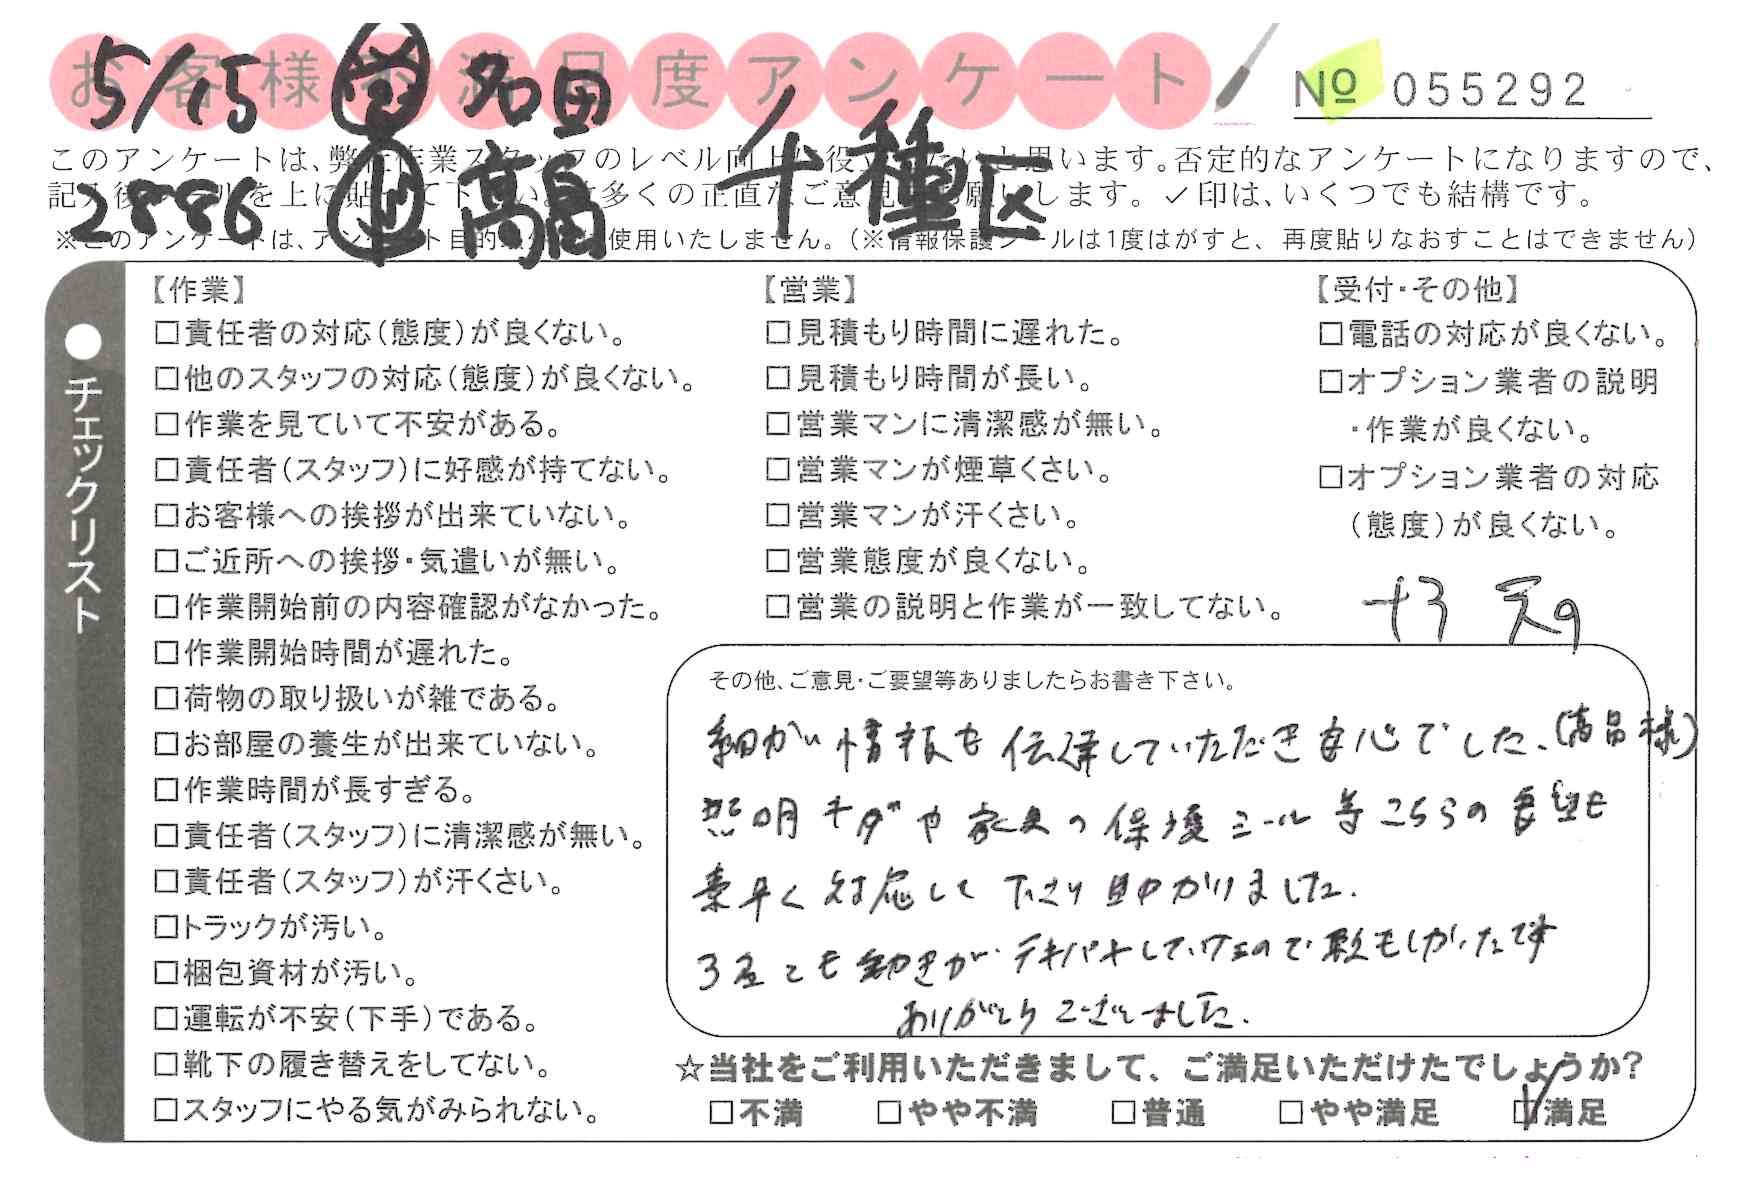 お客様不満足度アンケート
№ 055292
5/15 営 多田
千種区
このアンケートは、弊社作業スタッフのレベル向上に役立てたいと思います。否定的なアンケートになりますので、
記入後シールを上に貼って下さい。数多くの正直なご意見お願いします。✓印は、いくつでも結構です。
2886 作 高畠
※このアンケートは、アンケート目的以外には使用いたしません。(※情報保護シールは1度はがすと、再度貼りなおすことはできません)
●チェックリスト
【作業】
□責任者の対応(態度)が良くない。
□他のスタッフの対応(態度)が良くない。
□作業を見ていて不安がある。
□責任者(スタッフ)に好感が持てない。
□お客様への挨拶が出来ていない。
□ご近所への挨拶・気遣いが無い。
□作業開始前の内容確認がなかった。
□作業開始時間が遅れた。
□荷物の取り扱いが雑である。
□お部屋の養生が出来ていない。
□作業時間が長すぎる。
□責任者(スタッフ)に清潔感が無い。
□責任者(スタッフ)が汗くさい。
□トラックが汚い。
□梱包資材が汚い。
□運転が不安(下手)である。
□靴下の履き替えをしてない。
□スタッフにやる気がみられない。
【営業】
□見積もり時間に遅れた。
□見積もり時間が長い。
□営業マンに清潔感が無い。
□営業マンが煙草くさい。
□営業マンが汗くさい。
□営業態度が良くない。
□営業の説明と作業が一致してない。
【受付・その他】
□電話の対応が良くない。
□オプション業者の説明
・作業が良くない。
□オプション業者の対応
(態度)が良くない。
その他、ご意見・ご要望等ありましたらお書き下さい。
細かい情報も伝達していただき安心でした、(高畠様)
照明キダや家具の保護シール等こちらの要望も
素早く対応して下さり助かりました。
3名とも動きがテキパキしていたので頼もしかったです
ありがとうございました。
☆当社をご利用いただきまして、ご満足いただけたでしょうか?
□不満 □やや不満 □普通 □やや満足 ☑満足